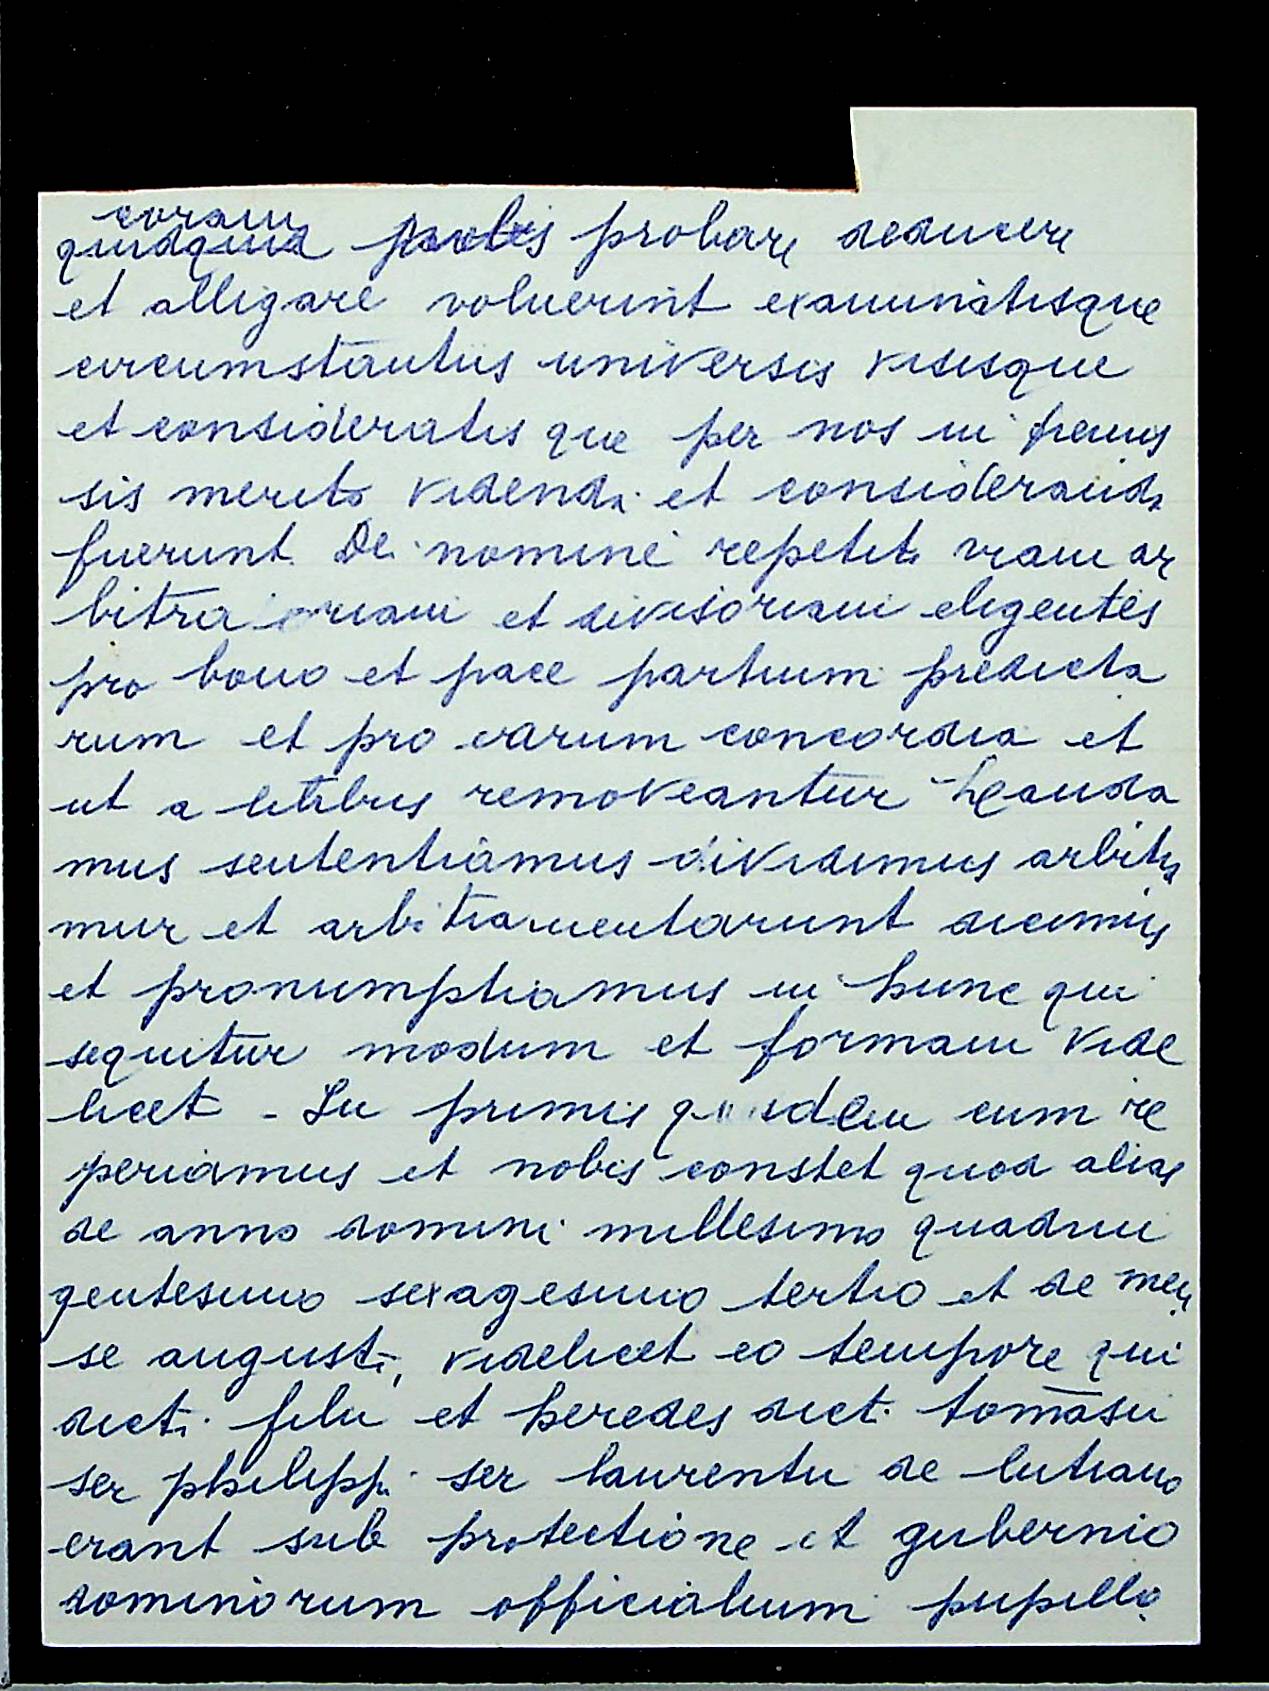 coram
quidquid nobis probare deducere
et alligare voluerint examinatisque
circumstantiis universis visisque
et consideratis que per nos in premis
sis merito videnda et consideranda
fuerunt De nomine repetito viam ar
bitra oriam et divisoriam eligentes
pro bono et pace partium predicta
rum et pro earum concordia et
ut a litibus removeantur Lauda
mus sententiamus dividimus arbitra
mur et arbitramentarunt dicimus
et pronumptiamus in hunc qui
sequitur modum et formam vide
licet - In primis quidem cum re
periamus et nobis constet quod alias
de anno domini millesimo quadrin
gentesimo sexagesimo tertio et de men
se augusti, videlicet eo tempore qui
dicti filii et heredes dicti tomasii
ser philippi ser laurentii de lutiano
erant sub protectione et gubernio
dominorum officialium pupillo